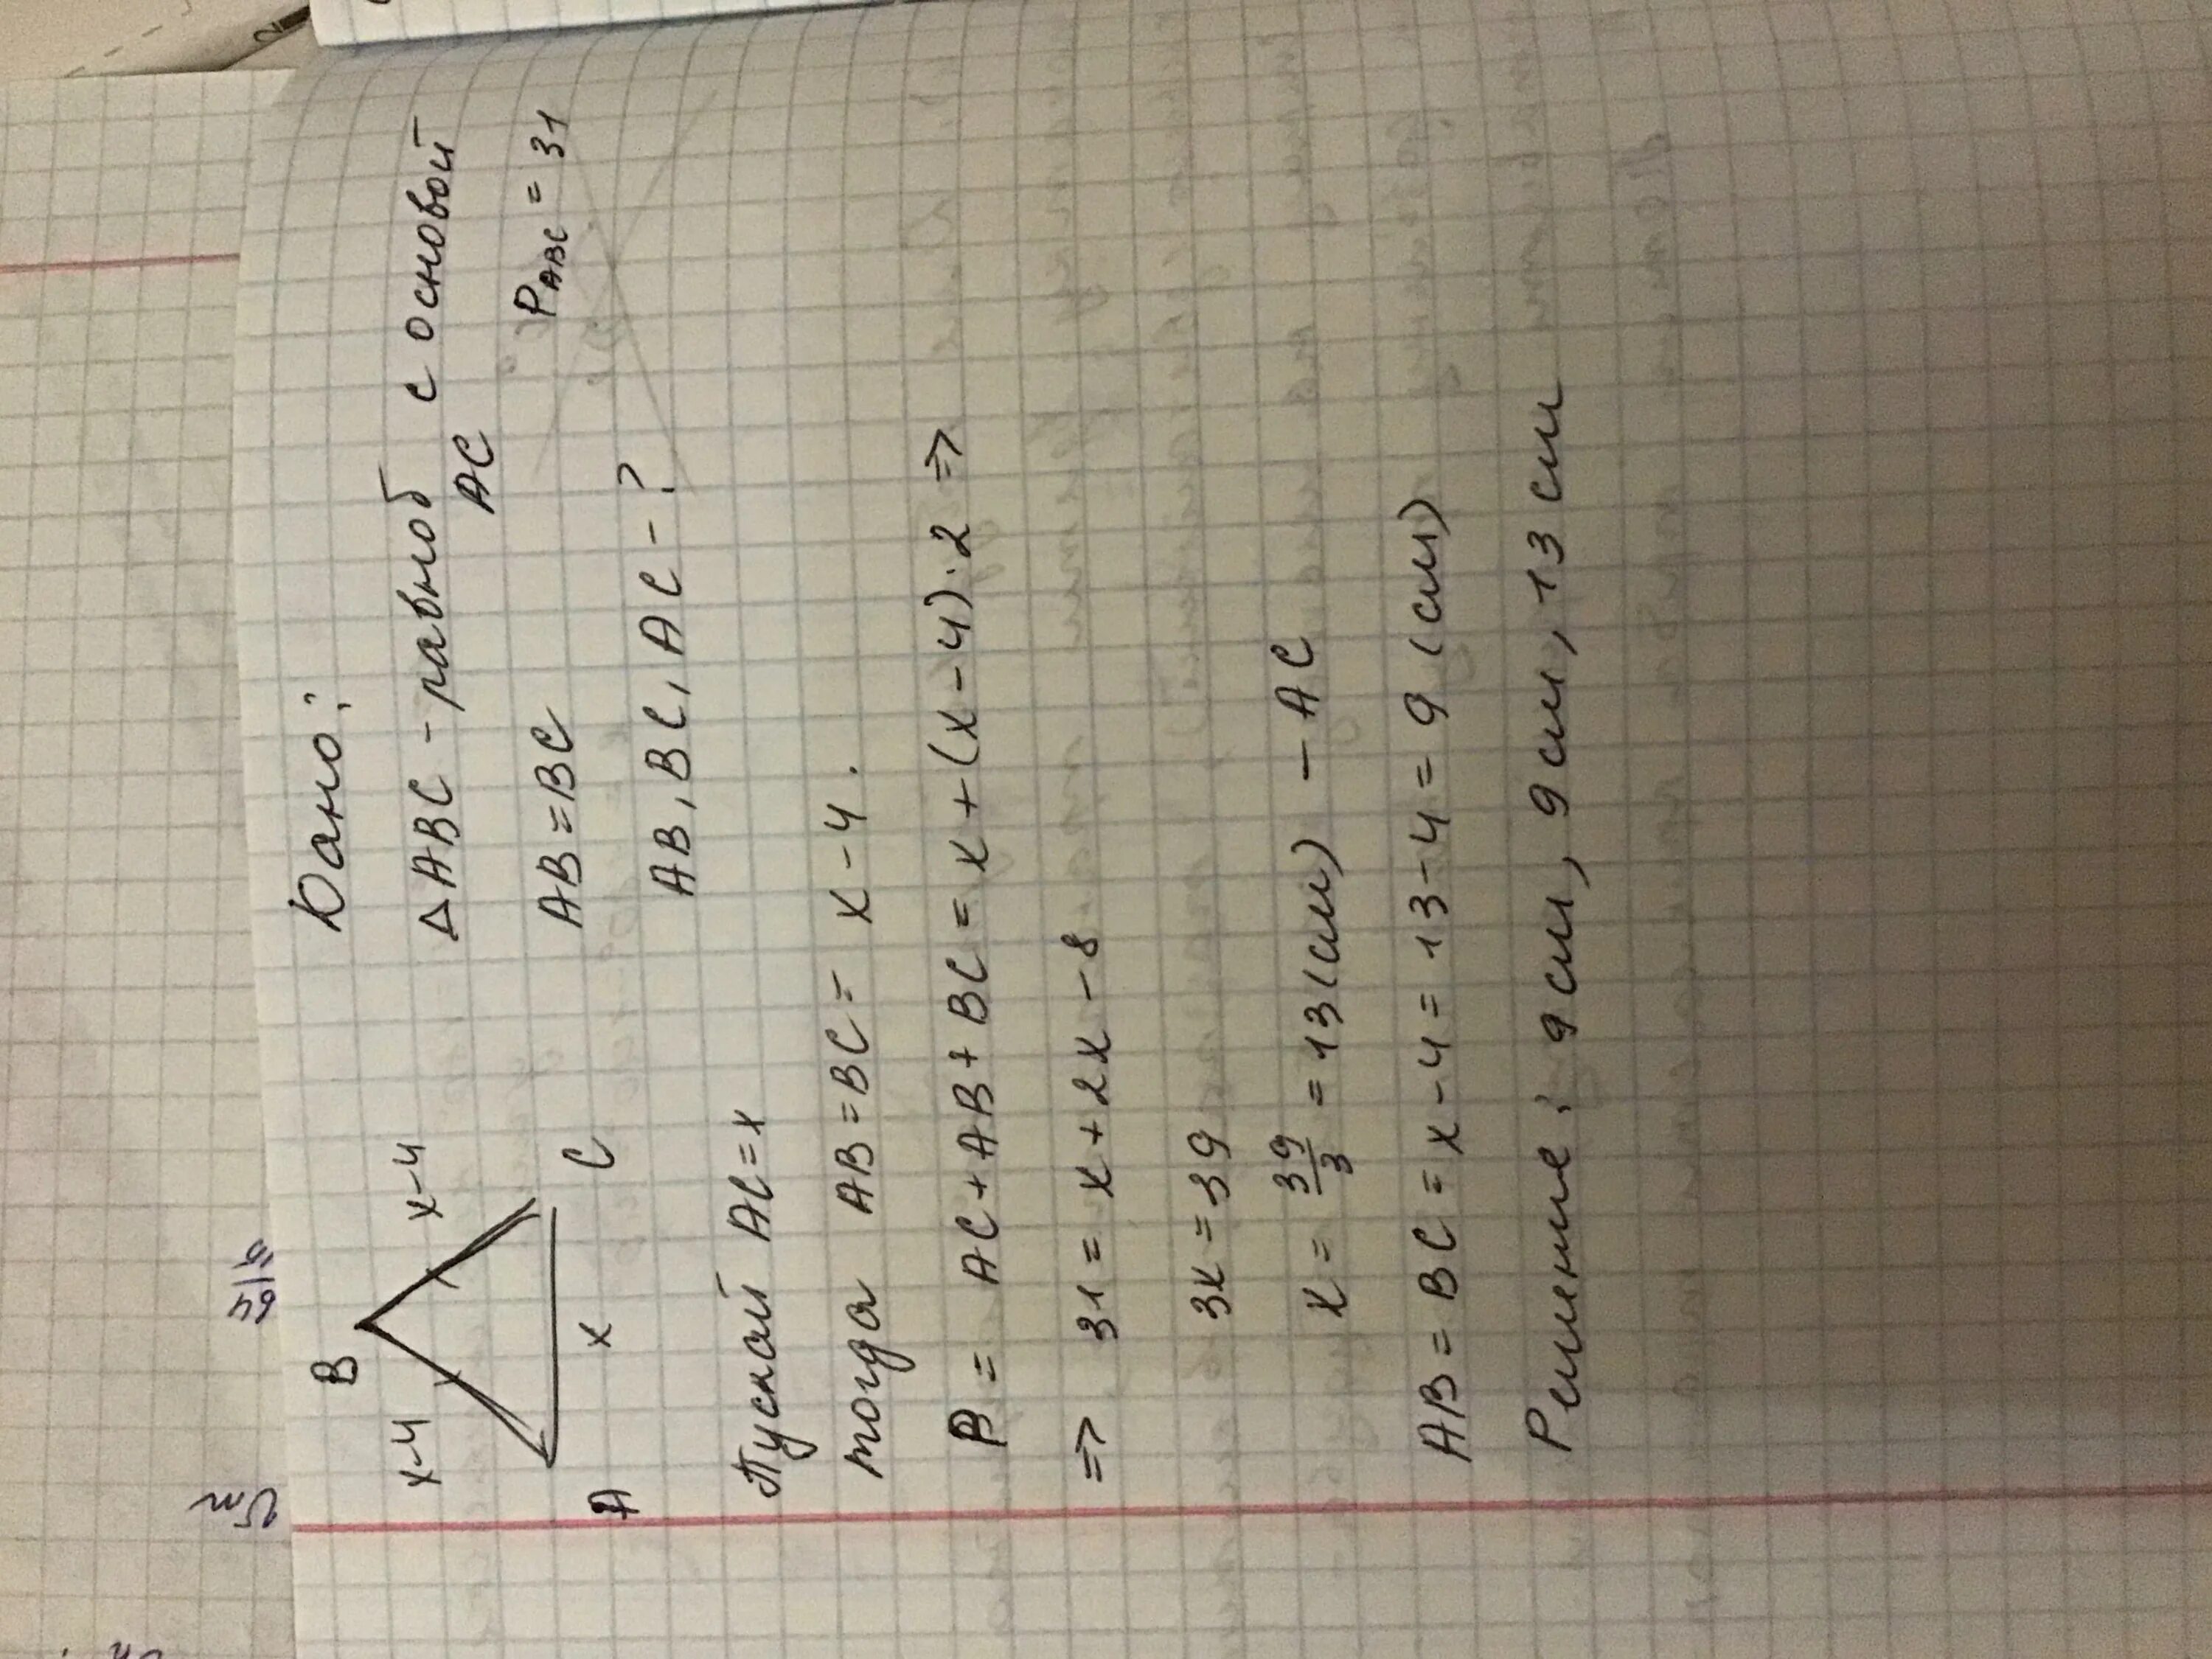 Дано:
B
x-4
x-4
ΔABC - равноб с основой
AC
AB = BC
P ABC = 31
A
x
C
AB, BC, AC - ?
Пускай AC = x
тогда AB = BC = x - 4.
P = AC + AB + BC = x + (x - 4) · 2 =>
=> 31 = x + 2x - 8
3x = 39
x = 39/3 = 13 (см) - AC
AB = BC = x - 4 = 13 - 4 = 9 (см)
Решение: 9 см, 9 см, 13 см